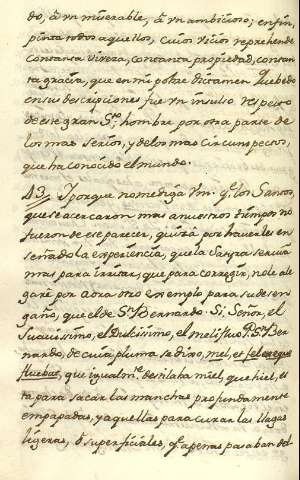 do, à vn miserable, à vn ambicioso; en fin,
pinta todos aquellos, cuios vicios reprehende
con tanta viveza, con tanta propiedad, con tan-
ta gracia, que en mi pobre dictamen Quebedo
en sus descripciones fue vn insulso respecto
de este gran Sto, hombre por otra parte de
los mas serios, y de los mas circunspectos,
que ha conocido el mundo.
43/ I porque no me diga Vm. q.e los Santos,
que se acercaron mas a nuestros tiempos no
fueron de ese parecer, quizá por haverles en-
señado la experiencia, que la Satyra servia
mas para irritar, que para corregir, no le ale-
garè por aora otro exemplo para su desen-
gaño, que el de Sn Bernardo. Si, Señor, el
Suavissimo, el Dulcissimo, el melifluo P. Sn Ber-
nardo, de cuia pluma se dixo, mel, et fel ex æquo
fluebat, que igualmte destilaba miel, que hiel, es-
ta para sacar las manchas profundamente
empapadas, y aquella para curar las llagas
ligeras, ò superficiales, q.e apenas pasaban del